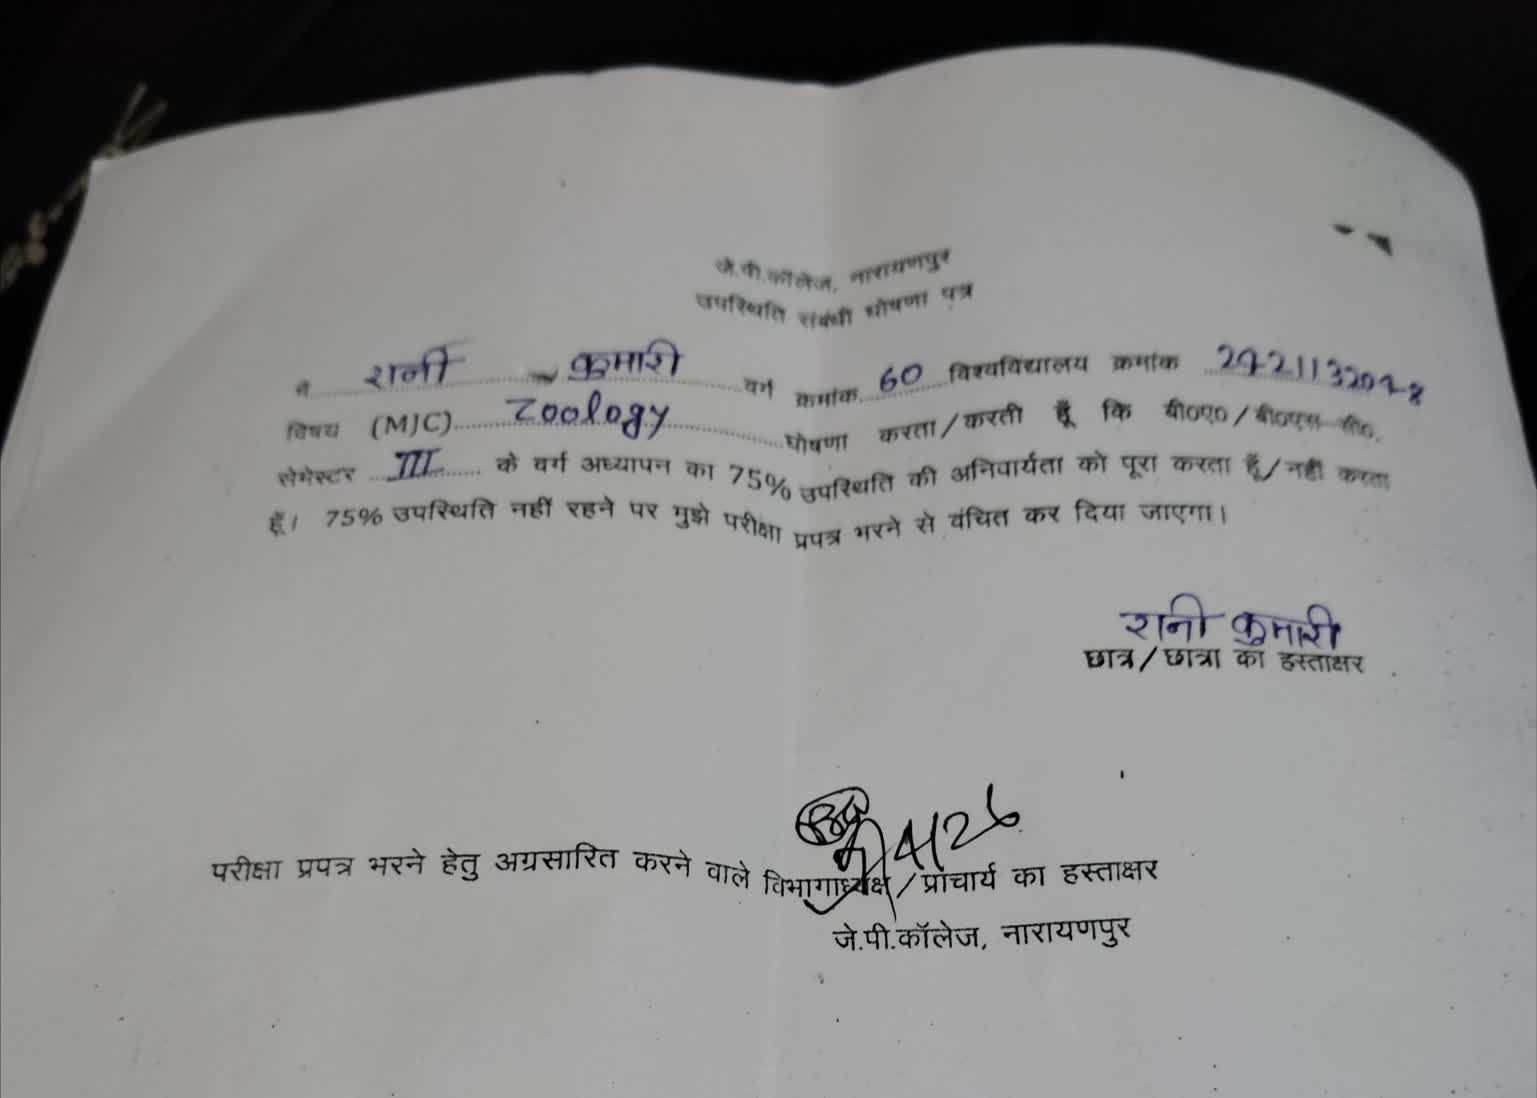 जे.पी.कॉलेज, नारायणपुर
उपस्थिति संबंधी घोषणा पत्र
मै रानी कुमारी वर्ग क्रमांक 60 विश्वविद्यालय क्रमांक
विषय (MJC) Zoology घोषणा करता/करती हूँ कि बी०ए०/बी०एस-सी०,
सेमेस्टर III के वर्ग अध्यापन का 75% उपस्थिति की अनिवार्यता को पूरा करता हूँ/नहीं करता
हूँ। 75% उपस्थिति नहीं रहने पर मुझे परीक्षा प्रपत्र भरने से वंचित कर दिया जाएगा।
रानी कुमारी
छात्र/छात्रा का हस्ताक्षर
परीक्षा प्रपत्र भरने हेतु अग्रसारित करने वाले विभागाध्यक्ष/प्राचार्य का हस्ताक्षर
जे.पी.कॉलेज, नारायणपुर